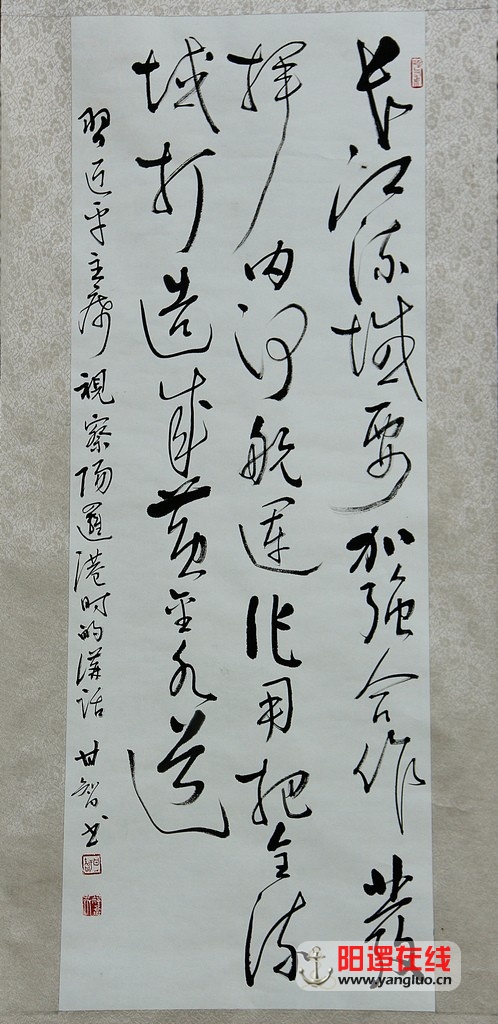 长江流域要加强合作發
挥内河航运作用把全流
域打造成黄金水道
習近平主席視察陽邏港时的講话 甘智书
阳逻在线
www.yangluo.cn